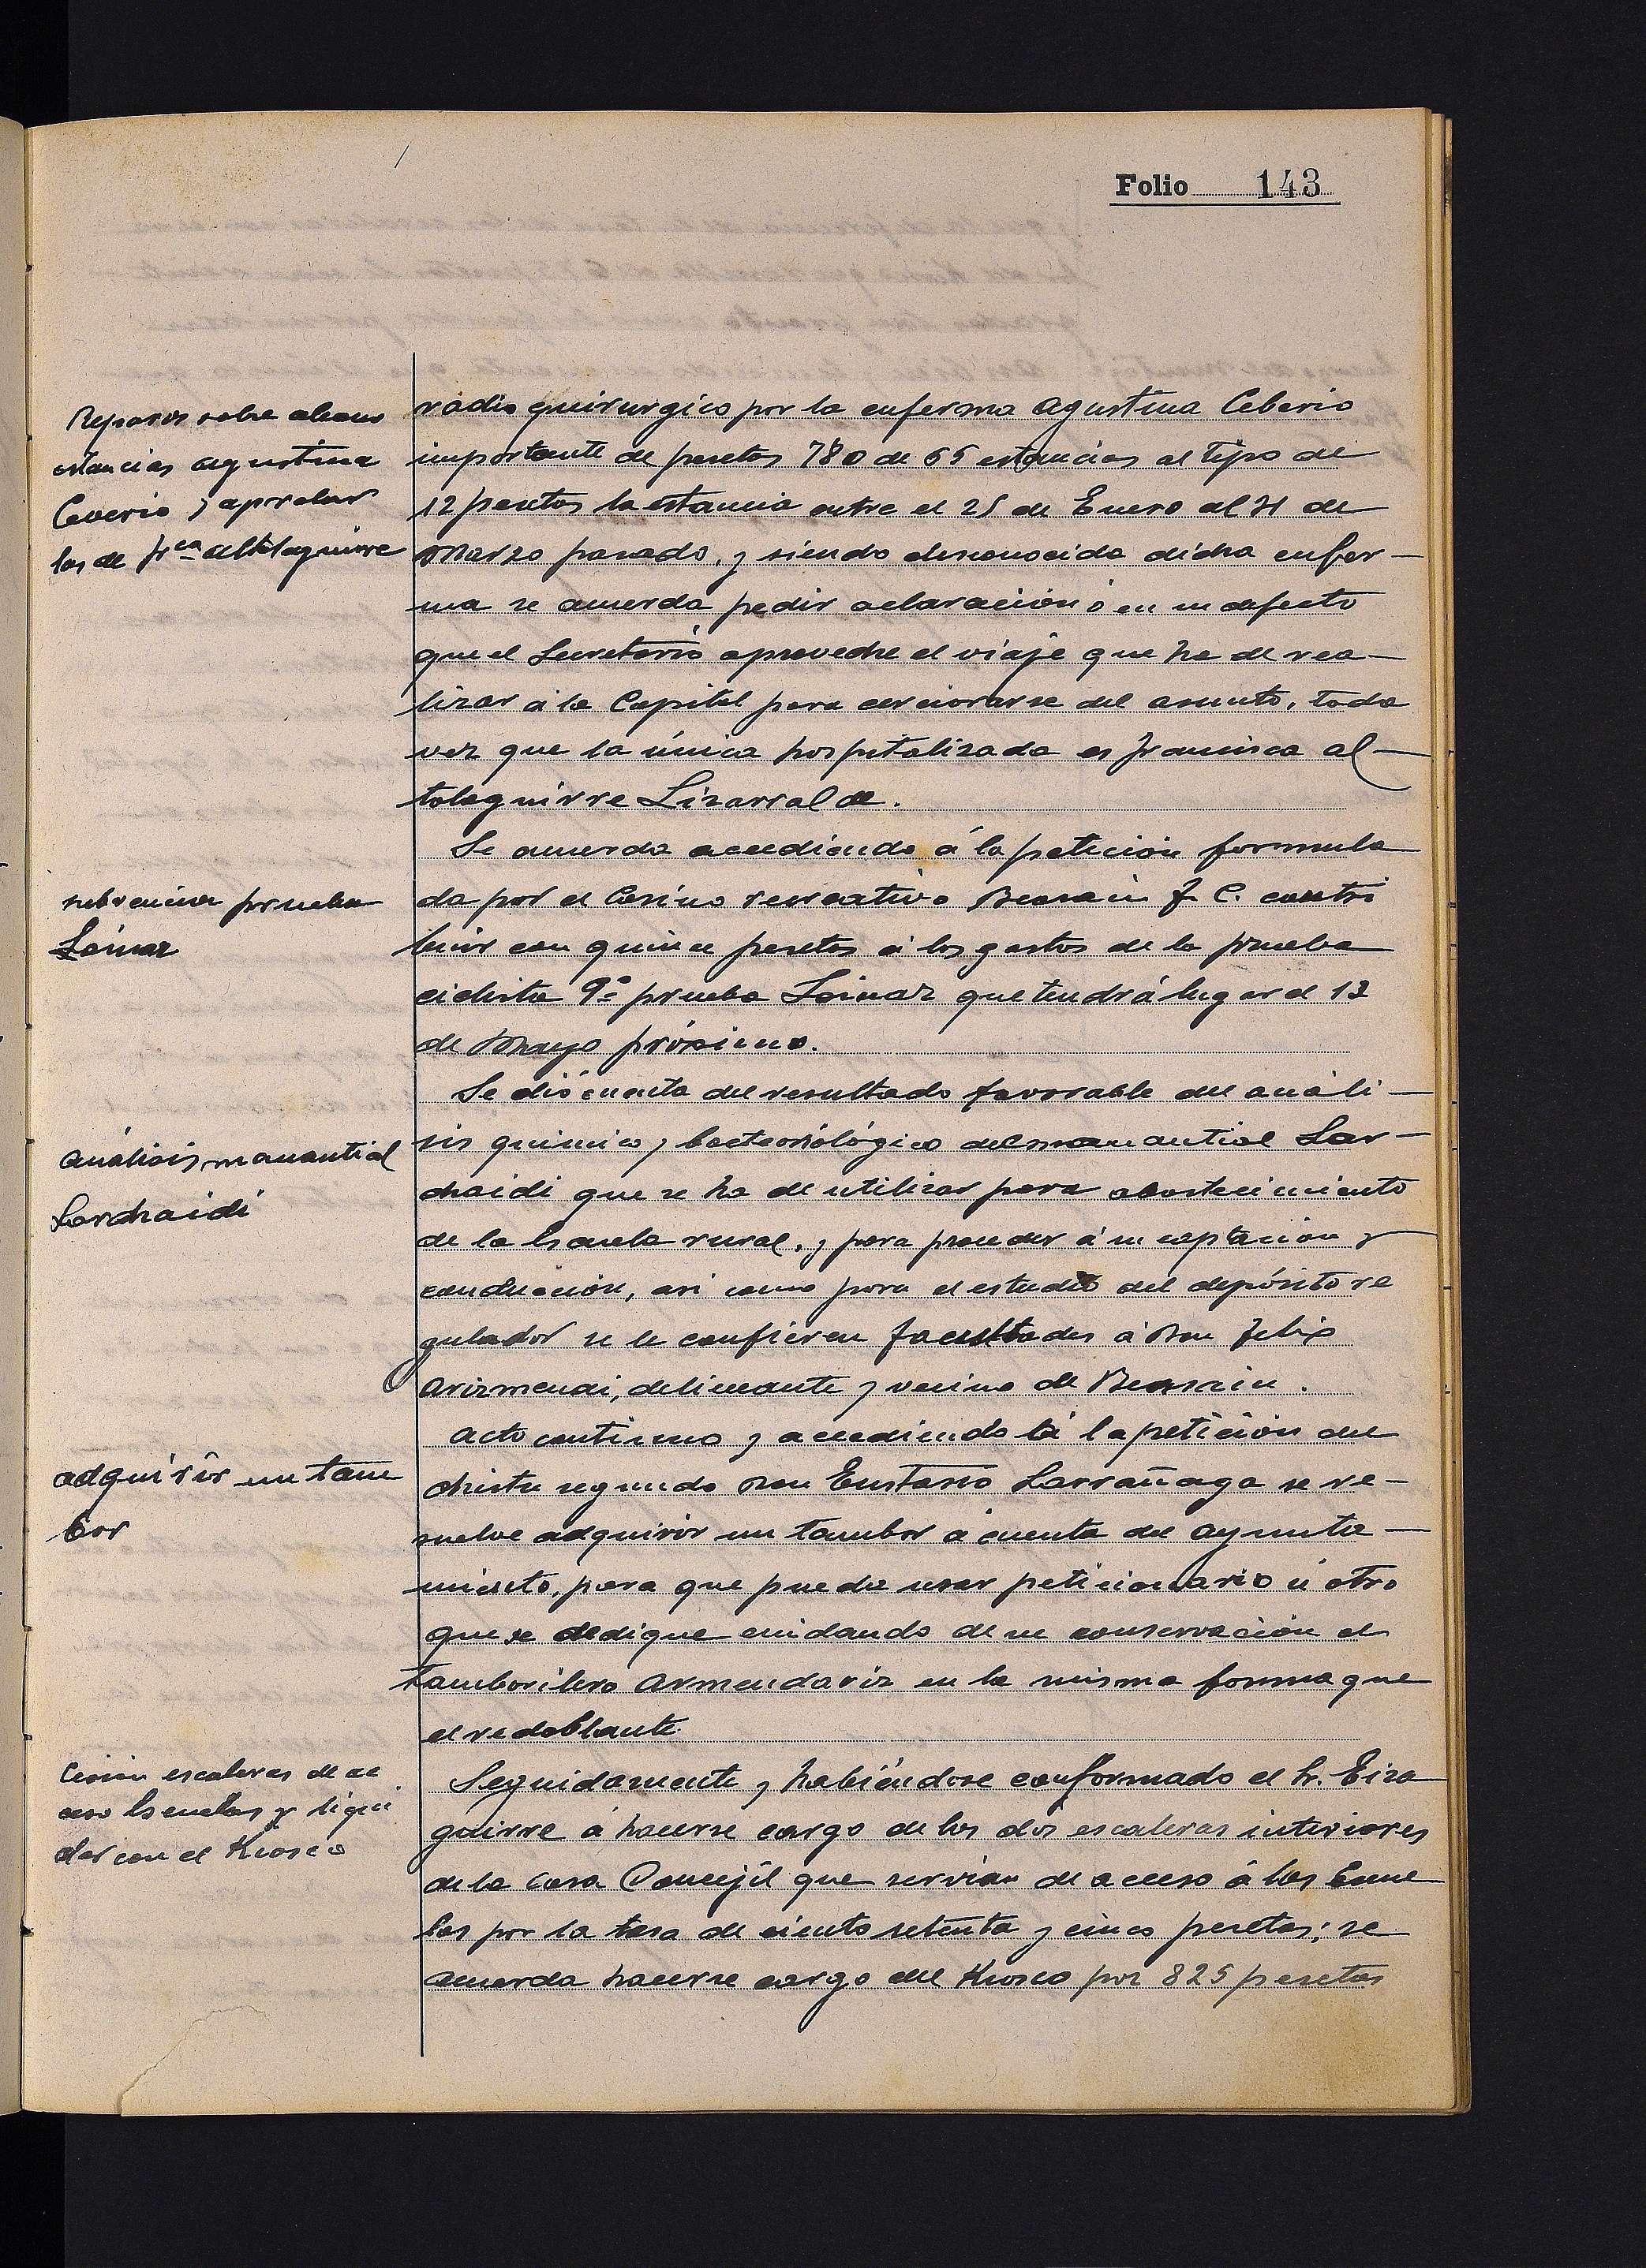 Folio 143
Reparos sobre abono
estancias Agustina
Ceverio y aprobar
las de Frca Altolaguirre
radio quirurgico por la enferma Agustina Ceberio
importante de pesetas 780 de 65 estancias al tipo de
12 pesetas la estancia entre el 25 de Enero al 31 de
Marzo pasado, y siendo desconocida dicha enfer-
ma se acuerda pedir aclaración ó en su defecto
que el Secretario aproveche el viaje que ha de rea-
lizar á la Capital para cerciorarse del asunto, toda
vez que la única hospitalizada es Francisca Al-
tolaguirre Lizarralde.
subvencion prueba
Loinaz
Se acuerda accediendo á la petición formula
da por el Casino recreativo Beasain F. C. contri
buir con quince pesetas á los gastos de la prueba
ciclista 9ª prueba Loinaz que tendrá lugar el 13
de Mayo próximo.
Análisis manantial
Larchaidi
Se dió cuenta del resultado favorable del análi-
sis quimico y bacteorólógico del manantial Lar-
chaidi que se ha de utilizar para abastecimiento
de la Escuela rural, y para proceder á su captación y
conducción, asi como para el estudio del depósito re
gulador se le confieren facultades á Don Felix
Arizmendi, delineante y vecino de Beasain.
adquirir un tam
bor
Acto continuo y accediendo á la petición del
chistu segundo Don Eustasio Larrañaga se re-
suelve adquirir un tambor á cuenta del Ayunta-
miento, para que pueda usar peticionario ú otro
que se dedique cuidando de su conservación el
tamborilero Armendariz en la misma forma que
el redoblante.
Cesion escaleras de ac
ceso Escuelas y liqui
dar con el Kiosco
Seguidamente y habiéndose conformado el Sr. Eiza
guirre á hacerse cargo de las dos escaleras interiores
de la Casa Concejil que servian de acceso á las Escue
las por la tasa de ciento setenta y cinco pesetas; se
acuerda hacerse cargo del Kiosco por 825 pesetas